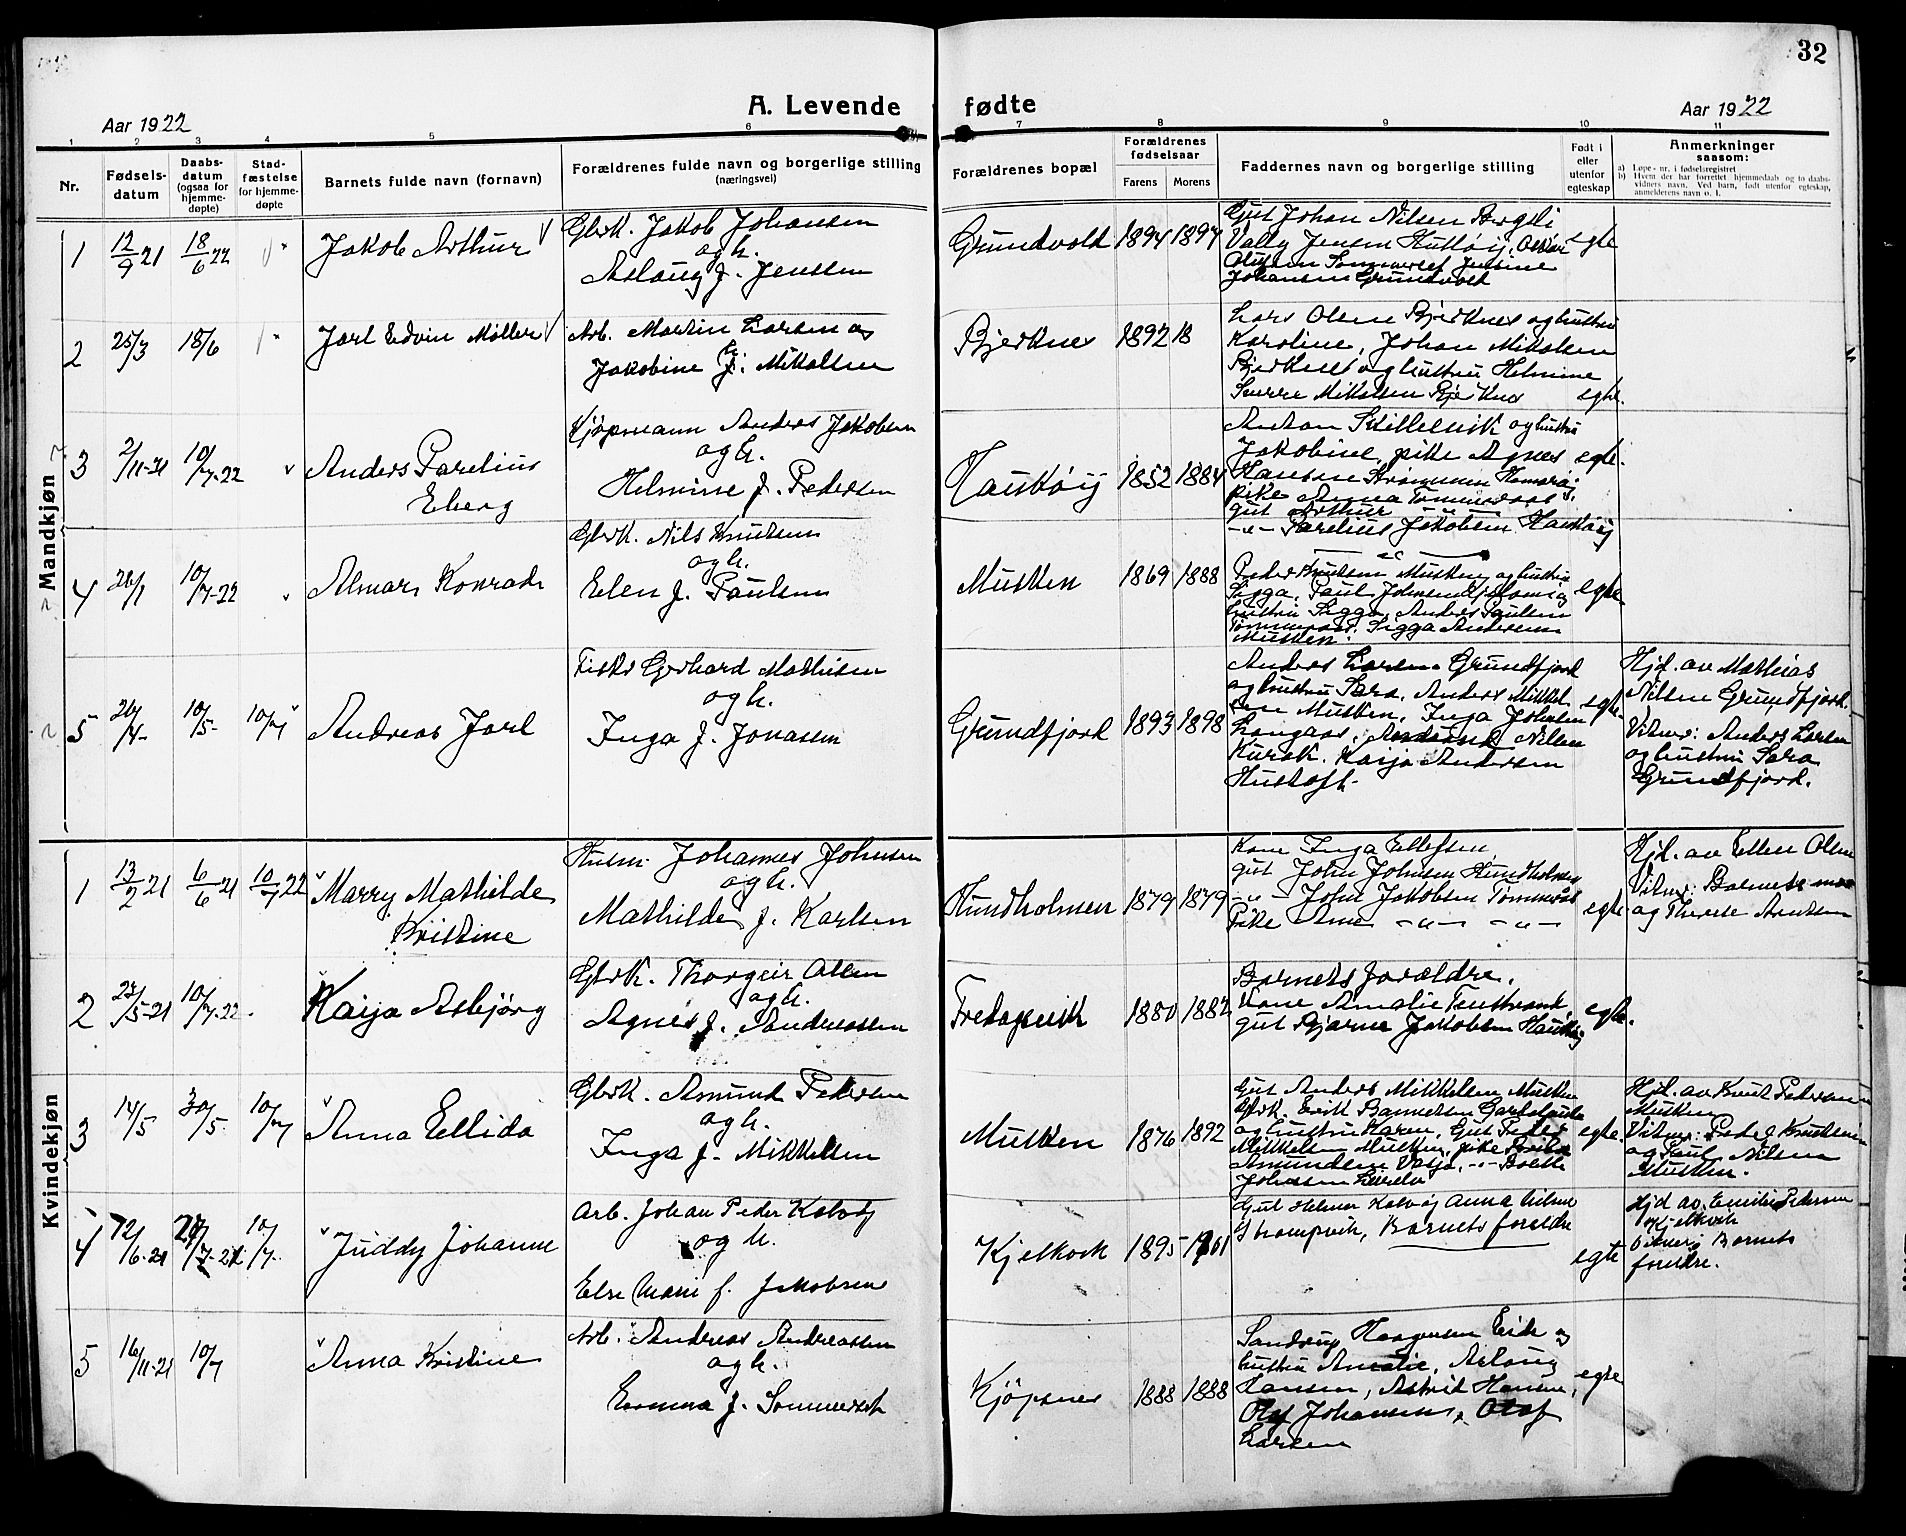 32
A. Levende fødte
Aar 1922
Aar 1922
1 2 3 4 5 6 7 8 9 10 11
Nr.
Fødsels-
datum
Daabs-
datum
(ogsaa for
hjemme-
døpte)
Stad-
fæstelse
for hjemme-
døpte
Barnets fulde navn (fornavn)
Forældrenes fulde navn og borgerlige stilling
(næringsvei)
Forældrenes bopæl
Forældrenes
fødselsaar
Farens
Morens
Faddernes navn og borgerlige stilling
Født i
eller
utenfor
egteskap
Anmerkninger
saasom:
a) Løpe-nr. i fødselsregistret
b) Hvem der har forrettet hjemmedaab og to daabs-
vidners navn. Ved barn, født utenfor egteskap,
anmelderens navn o. l.
Mandkjøn
1
12/9 21
18/6 22
Jakob Arthur
Gbrk. Jakob Johansen
og h.
Aslaug f. Jenssen
Grundvold
1894 1897
Gut Johan Nilsen Bergeli
Vally Jensen Hustøij, Oskar
Olufsen Sommerset Jensine
Johansen Grundvold
egte
2
25/3
18/6
Jarl Edvin Møller
Arb. Martin Larsen og
h.
Jakobine f. Mikalsen
Bjerknes
1892 18
Lars Olsen Bjerknes og hustru
Karoline, Johan Mikalsen
Bjerknes og hustru Helmine
Sverre Mikalsen Bjerknes
egte.
3
2/11-21
10/7-22
Anders Parelius
Eberg
Kjøpmann Anders Jakobsen
og h.
Helmine f. Pedersen
Haukøij
1852 1884
Anton Skillevik og hustru
Jakobine, pike Agnes
Hansen Strømmen Hamarøi
pike Anna Tømmeraas
gut Arthur — " —
-"- Parelius Jakobsen Haukøij
egte.
4
26/1
10/7-22
Almar Konrad
Gbrk. Nils Knutsen
og h.
Elen f. Paulsen
Musken
1869 1888
Peder Knutsen Musken og hustru
Sigga, Paul Johnsen
hustru Sigga, Anders Paulsen
Tømmeraas, Sigga Andersen
Musken.
egte.
5
26/4-
10/5-
10/7
Andreas Jarl
Fisker Gerhard Mathisen
og h.
Inga f. Jonassen
Grundfjord
1893 1898
Anders Larsen Grundfjord
og hustru Sara, Anders Mikkel
sen Musken, Inga Johnsen
Langaas, Nilsen
Kursk. Kaija Andersen
Hustoft.
egte.
Hjd. av Mathias
Nilsen Grundfjord.
Vitner: Anders Larsen
og hustru Sara
Grundfjord.
Kvindekjøn
1
13/2 21
6/6 21
10/7 22
Marry Mathilde
Kristine
Husm. Johannes Johnsen
og h.
Mathilde f. Karlsen
Hundholmen
1879 1879
Kone Inga Ellefsen
gut John Johnsen Hundholmen
-"- John Jakobsen Tømmerås
Pike Anna -"- -"-
egte
Hjd. av Ellen Olsen
Vitner: Barnets mor
og Therese Arntsen
2
/5-21
10/7-22
Kaija Asbjørg
Gbrk. Thorgeir Olsen
og h.
Agnes f. Andreassen
Fredagsvik
1880 1882
Barnets forældre.
Kone Amalie
gut Bjarne Jakobsen Haukøij
egte.
3
14/5
30/5
10/7
Anna Ellida
Gbrk. Amund Pedersen
og h.
Inga f. Mikkelsen
Musken
1876 1892
Gut Anders Mikkelsen Musken
Gbrk. Erik
og hustru Karen, Gut Peder
Mikkelsen Musken, pike
Amundsen -"-
Johnsen
egte.
Hjd. av Knut Pedersen
Musken
Vitner: Peder Knutsen
og Paul Nilsen
Musken.
4
12/6-21
/7-21
10/7-
Juddy Johanne
Arb. Johan Peder Kalvåg
og h.
Else Marie f. Jakobsen
Kjelkvik
1895 1901
Gut Helmer Kalvåg Anna Nilsen
Strompvik, Barnets foreldre
egte
Hjd av Emilie Pedersen
Kjelkvik
Vitner: Barnets
foreldre.
5
16/11-21
10/7
Anna Kristine
Arb. Andreas Andreassen
og h.
Emma f. Sommerset
Kjöpsnes
1888 1888
Haagensen Eide og
hustru Amalie, Aslaug
Hansen, Astrid Hansen,
Olaf Johansen, Olaf
Larsen
egte